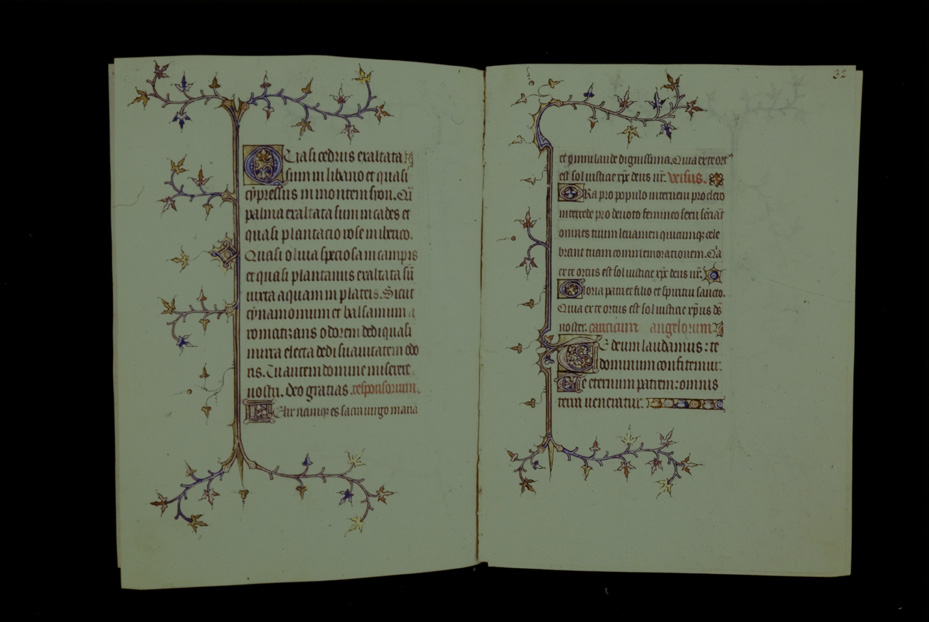 Quasi cedrus exaltata
sum in libano et quasi
cypressus in monte syon. Qᷓ
palma exaltata sum in cades et
quasi plantacio rose in iherico.
Quasi oliua speciosa in campis
et quasi plantanus exaltata sū
iuxta aquam in plateis. Sicut
cynamomum et balsamum a
romatizans odorem dedi quasi
mirra electa dedi suauitatem odo
ris. Tu autem domine miserere
nostri. Deo gracias. responsorium.
Felix namque es sacra uirgo maria
32
et omni laude dignissima. Quia ex te ort
est sol iusticie xp̄c deus nr̄. versus.
Ora pro populo interueni pro clero
intercede pro deuoto femineo sexu sēciāt
omnes tuum leuamen quicumque cele
brant tuam commemorationem. Q̄a
ex te ortus est sol iusticie xp̄c deus nr̄.
Gloria patri et filio et spiritui sancto.
Quia ex te ortus est sol iusticie xp̄us ds̄
noster. canticum angelorum
Te deum laudamus: te
dominum confitemur.
Te eternum patrem: omnis
terra ueneratur.